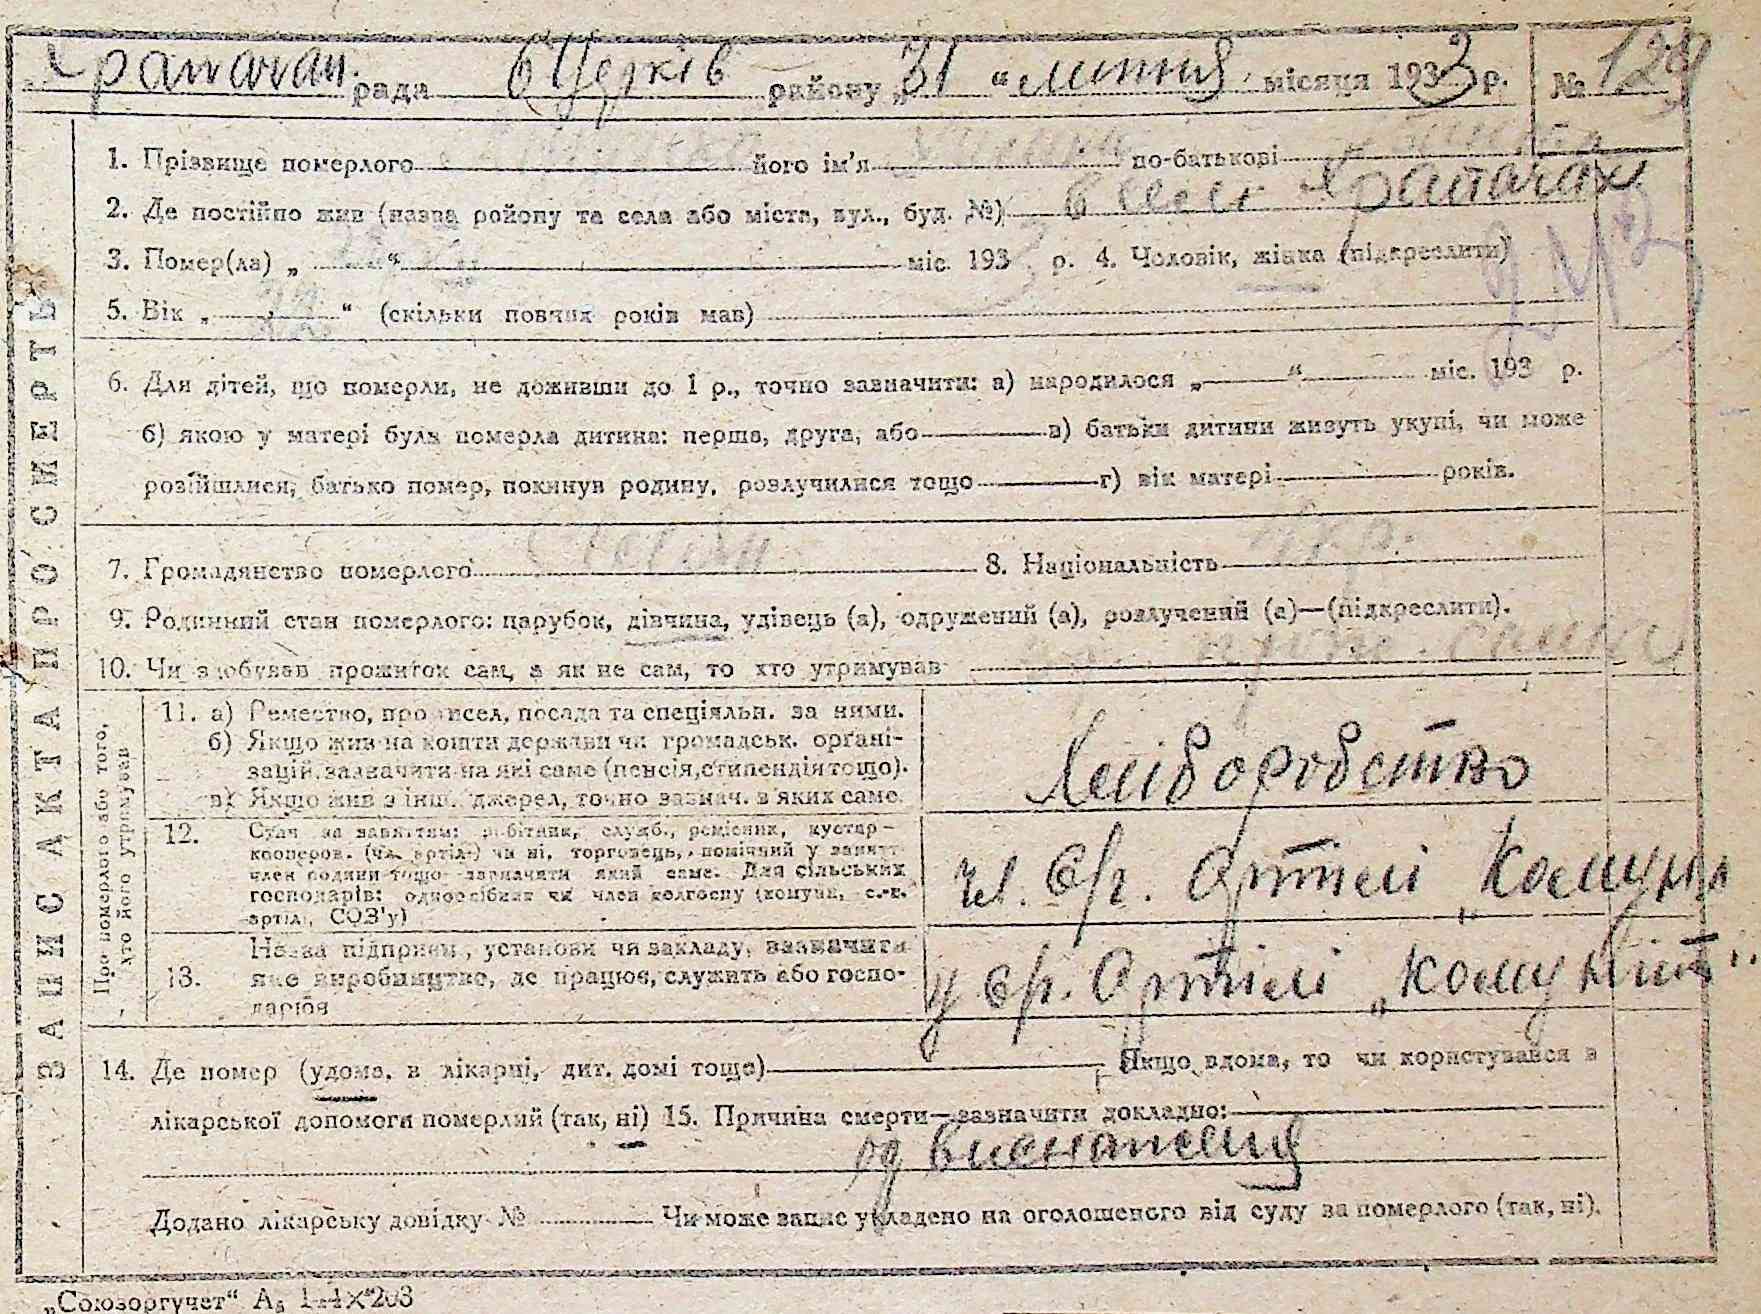 Храпачан. рада бЦерків району „31“ липня місяця 1933 р. № 129
1. Прізвище померлого його ім'я по-батькові
2. Де постійно жив (назва району та села або міста, вул., буд. №) в селі Храпачах
3. Помер(ла) „ “ міс. 193 р. 4. Чоловік, жінка (підкреслити)
5. Вік „ “ (скільки повних років мав)
6. Для дітей, що померли, не доживши до 1 р., точно зазначити: а) народилося „ “ міс. 193 р.
б) якою у матері була померла дитина: перша, друга, або в) батьки дитини живуть укупі, чи може
розійшлися, батько помер, покинув родину, розлучилися тощо г) вік матері років.
7. Громадянство померлого 8. Національність укр.
9. Родинний стан померлого: парубок, дівчина, удівець (а), одружений (а), розлучений (а)—(підкреслити).
10. Чи здобував прожиток сам, а як не сам, то хто утримував
ЗАПИС АКТА ПРО СМЕРТЬ
Про померлого або того,
хто його утримував
11. а) Ремество, промисел, посада та спеціяльн. за ними.
б) Якщо жив на кошти держави чи громадськ. органі-
зацій, зазначити на які саме (пенсія, стипендія тощо).
в) Якщо жив з інш. джерел, точно зазнач. з яких саме.
Хліборобство
12. Стан за заняттям: робітник, служб., ремісник, кустар-
кооперов. (чл. артілі) чи ні, торговець, помічний у занятт.
член родини тощо зазначити який саме. Для сільських
господарів: одноосібник чи член колгоспу (комуни, с.-г.
артілі, СОЗ'у)
чл. с/г. Артілі „Комуна
13. Назва підприєм., установи чи закладу, зазначити
яке виробництво, де працює, служить або госпо-
дарює
у с/г. Артілі „Комуніст“
14. Де помер (удома, в лікарні, дит. домі тощо) Якщо вдома, то чи користувався з
лікарської допомоги померлий (так, ні) 15. Причина смерти—зазначити докладно:
од виснаження
Додано лікарську довідку № Чи може запис укладено на оголошеного від суду за померлого (так, ні).
„Союзоргучет“ А₅ 144×203